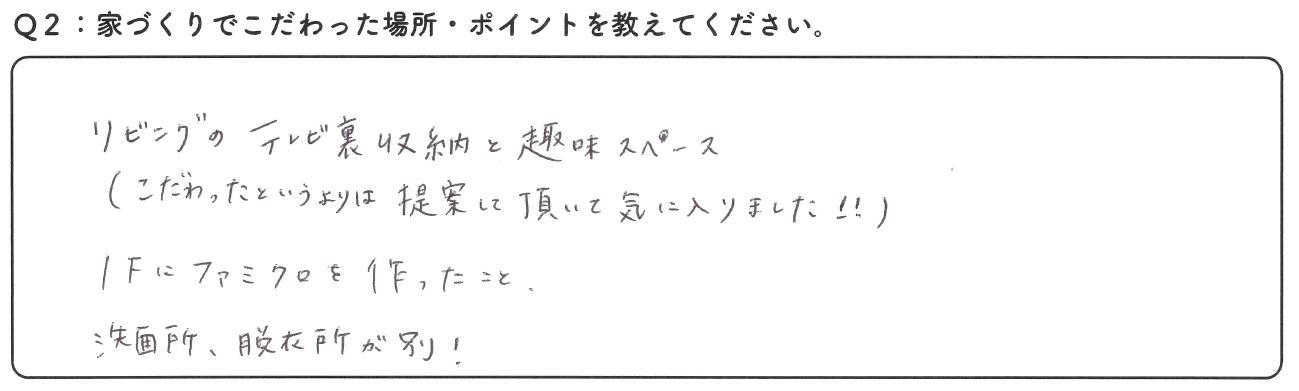 Q2：家づくりでこだわった場所・ポイントを教えてください。
リビングの テレビ裏収納と趣味スペース
(こだわったというよりは 提案して頂いて気に入りました!!)
1Fにファミクロを作ったこと.
洗面所、脱衣所が別!